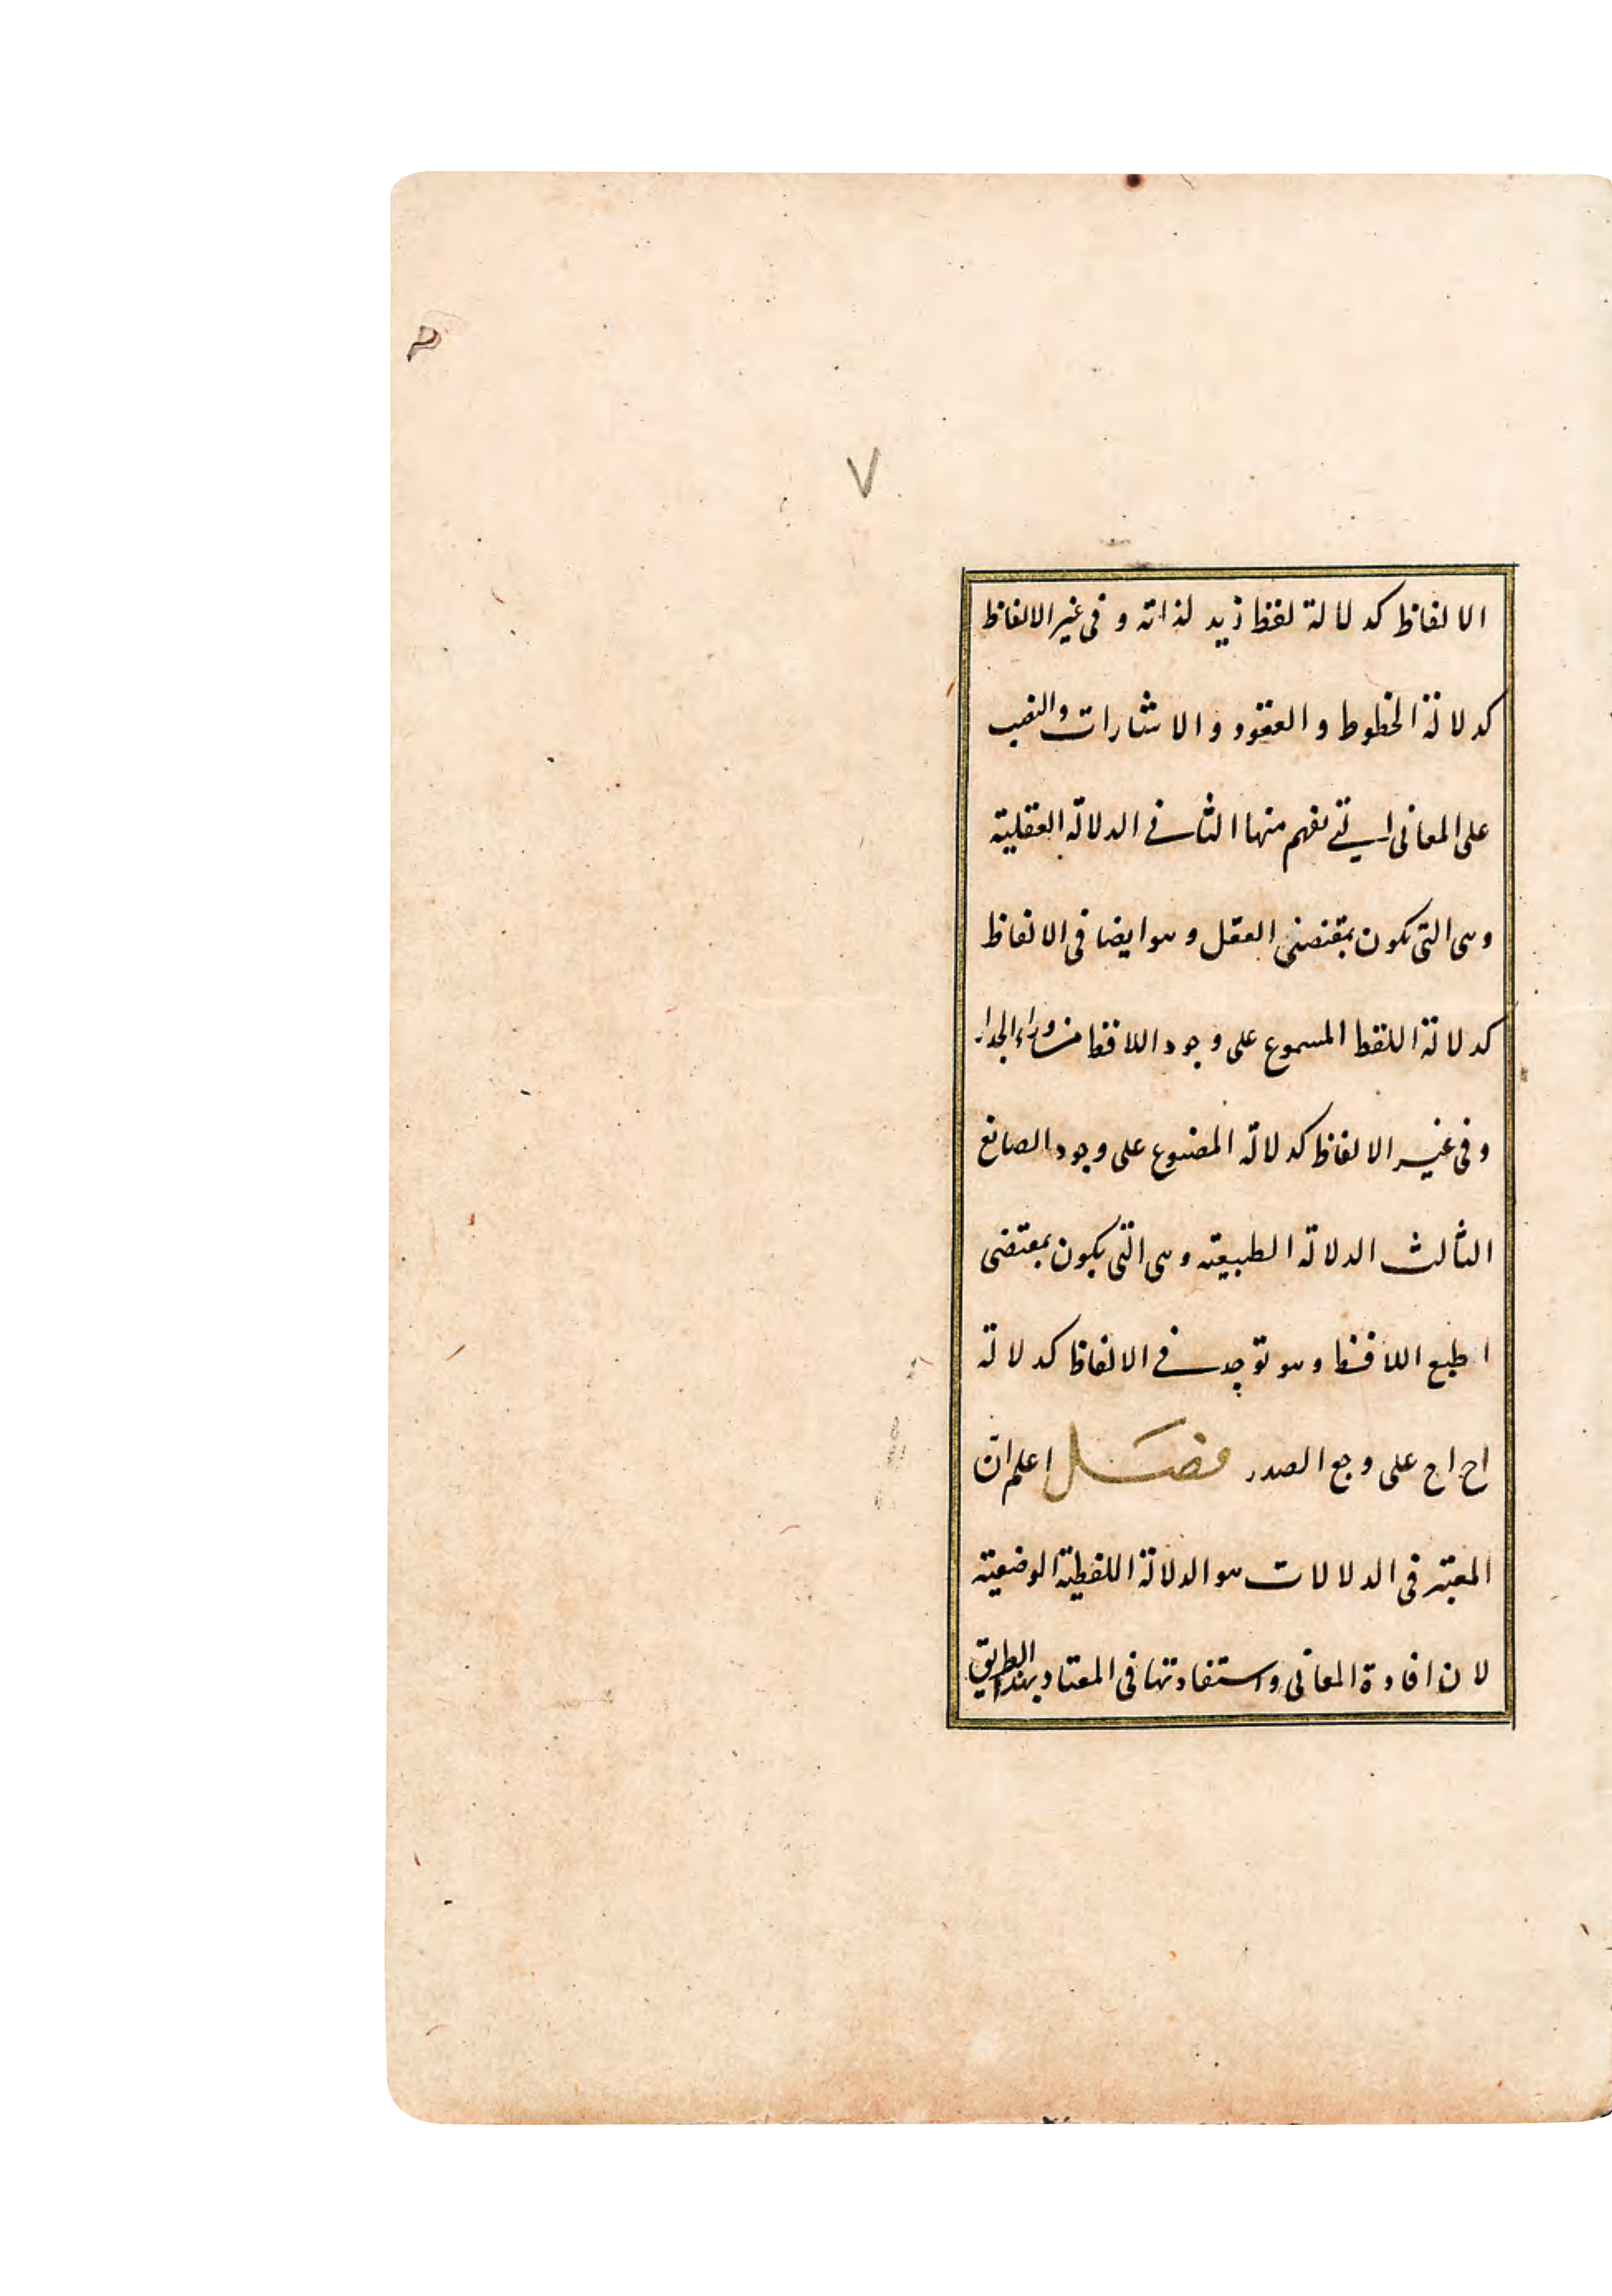 ٧
الالفاظ كدلالة لفظ زيد لذاته و فى غير الالفاظ
كدلالة الخطوط و العقود و الاشارات والنصب
على المعانى التى تفهم منها الثانى الدلالة العقلية
وهى التى تكون بمقتضى العقل وهو ايضا فى الالفاظ
كدلالة اللفظ المسموع على وجود اللافظ من وراء الجدار
وفى غير الالفاظ كدلالة المصنوع على وجود الصانع
الثالث الدلالة الطبيعية وهى التى يكون بمقتضى
اطبع اللافظ وهو توجد فى الالفاظ كدلالة
اح اح على وجع الصدر فصل اعلم ان
المعتبر فى الدلالات هو الدلالة اللفظية الوضعية
لان افادة المعانى واستفادتها فى المعتاد بهذا الطريق